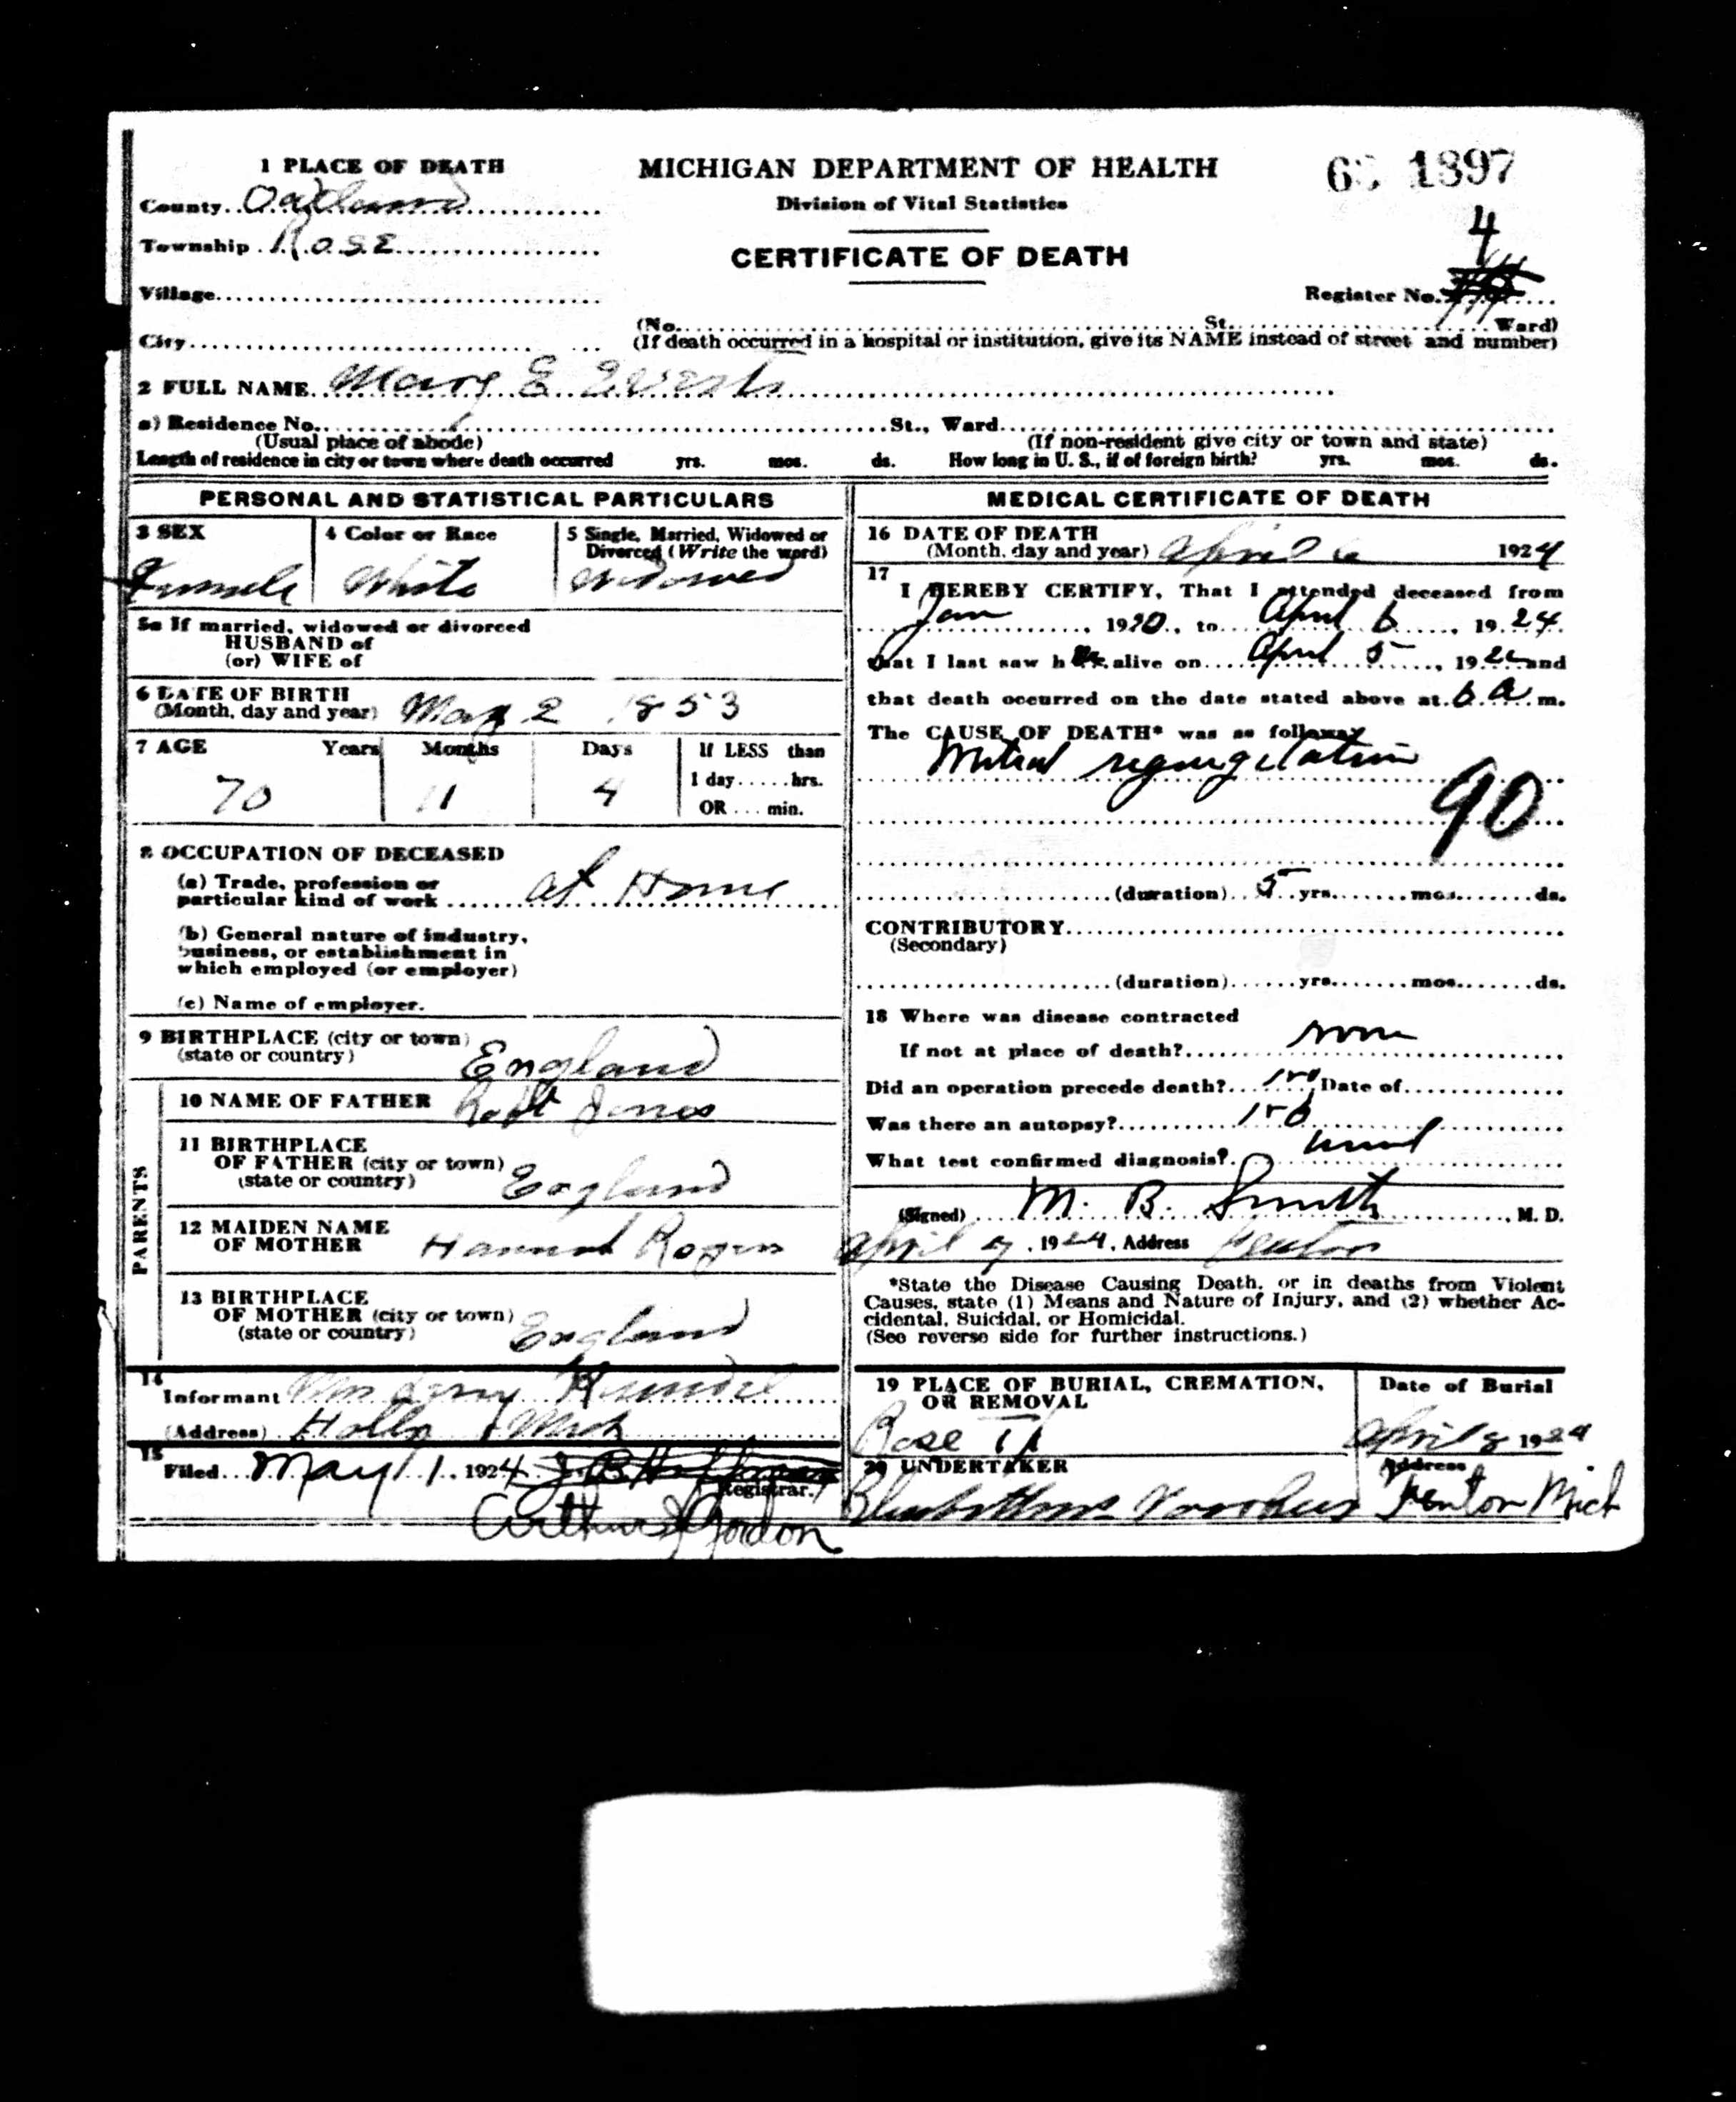 1 PLACE OF DEATH
County Oakland
Township Rose
Village
City
MICHIGAN DEPARTMENT OF HEALTH
Division of Vital Statistics
CERTIFICATE OF DEATH
1897
4
Register No.
(No. St. Ward)
(If death occurred in a hospital or institution, give its NAME instead of street and number)
2 FULL NAME Mary E
a) Residence No. St., Ward
(Usual place of abode) (If non-resident give city or town and state)
Length of residence in city or town where death occurred yrs. mos. ds. How long in U. S., if of foreign birth? yrs. mos. ds.
PERSONAL AND STATISTICAL PARTICULARS
3 SEX 4 Color or Race 5 Single, Married, Widowed or
Divorced (Write the word)
Female White Widowed
5a If married, widowed or divorced
HUSBAND of
(or) WIFE of
6 DATE OF BIRTH
(Month, day and year) May 2 1853
7 AGE Years Months Days If LESS than
1 day hrs.
70 11 4 OR min.
8 OCCUPATION OF DECEASED
(a) Trade, profession or
particular kind of work at Home
(b) General nature of industry,
business, or establishment in
which employed (or employer)
(c) Name of employer.
9 BIRTHPLACE (city or town)
(state or country) England
PARENTS
10 NAME OF FATHER Robt Jones
11 BIRTHPLACE
OF FATHER (city or town)
(state or country) England
12 MAIDEN NAME
OF MOTHER Hannah Rogers
13 BIRTHPLACE
OF MOTHER (city or town)
(state or country) England
14
Informant
(Address) Holly Mich
15
Filed May 1, 1924
Registrar.
Arthur J Gordon
MEDICAL CERTIFICATE OF DEATH
16 DATE OF DEATH
(Month, day and year) April 6 1924
17
I HEREBY CERTIFY, That I attended deceased from
Jan , 1920, to April 6 , 1924
that I last saw her alive on April 5 , 192 and
that death occurred on the date stated above at 6 a m.
The CAUSE OF DEATH* was as follows
Mitral regurgitation
90
(duration) 5 yrs. mos. ds.
CONTRIBUTORY
(Secondary)
(duration) yrs. mos. ds.
18 Where was disease contracted
If not at place of death?
Did an operation precede death? no Date of
Was there an autopsy? no
What test confirmed diagnosis? usual
(Signed) M. B. Smith , M. D.
April 7, 1924, Address Fenton
*State the Disease Causing Death, or in deaths from Violent
Causes, state (1) Means and Nature of Injury, and (2) whether Ac-
cidental, Suicidal, or Homicidal.
(See reverse side for further instructions.)
19 PLACE OF BURIAL, CREMATION,
OR REMOVAL
Rose
Date of Burial
April 8 1924
20 UNDERTAKER Address
Fenton Mich